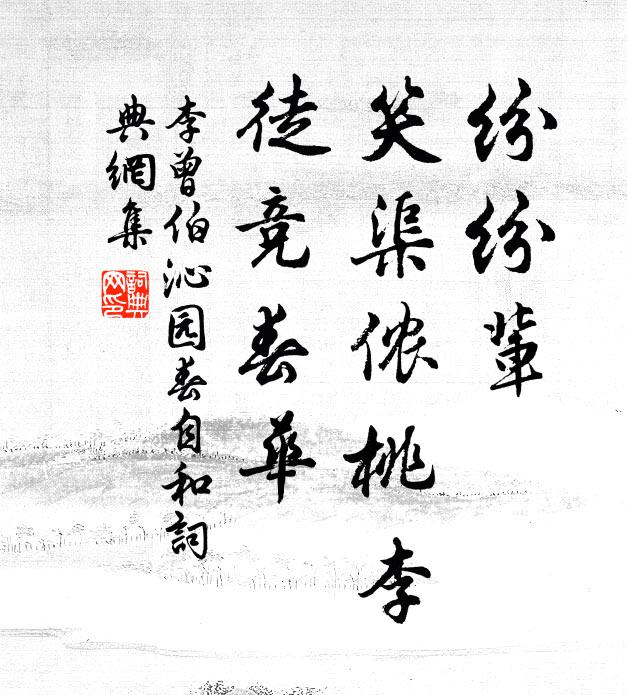 纷纷辈
笑渠侬桃李
徒竞春华
李曾伯沁园春自和詞
典網集
詞典网印